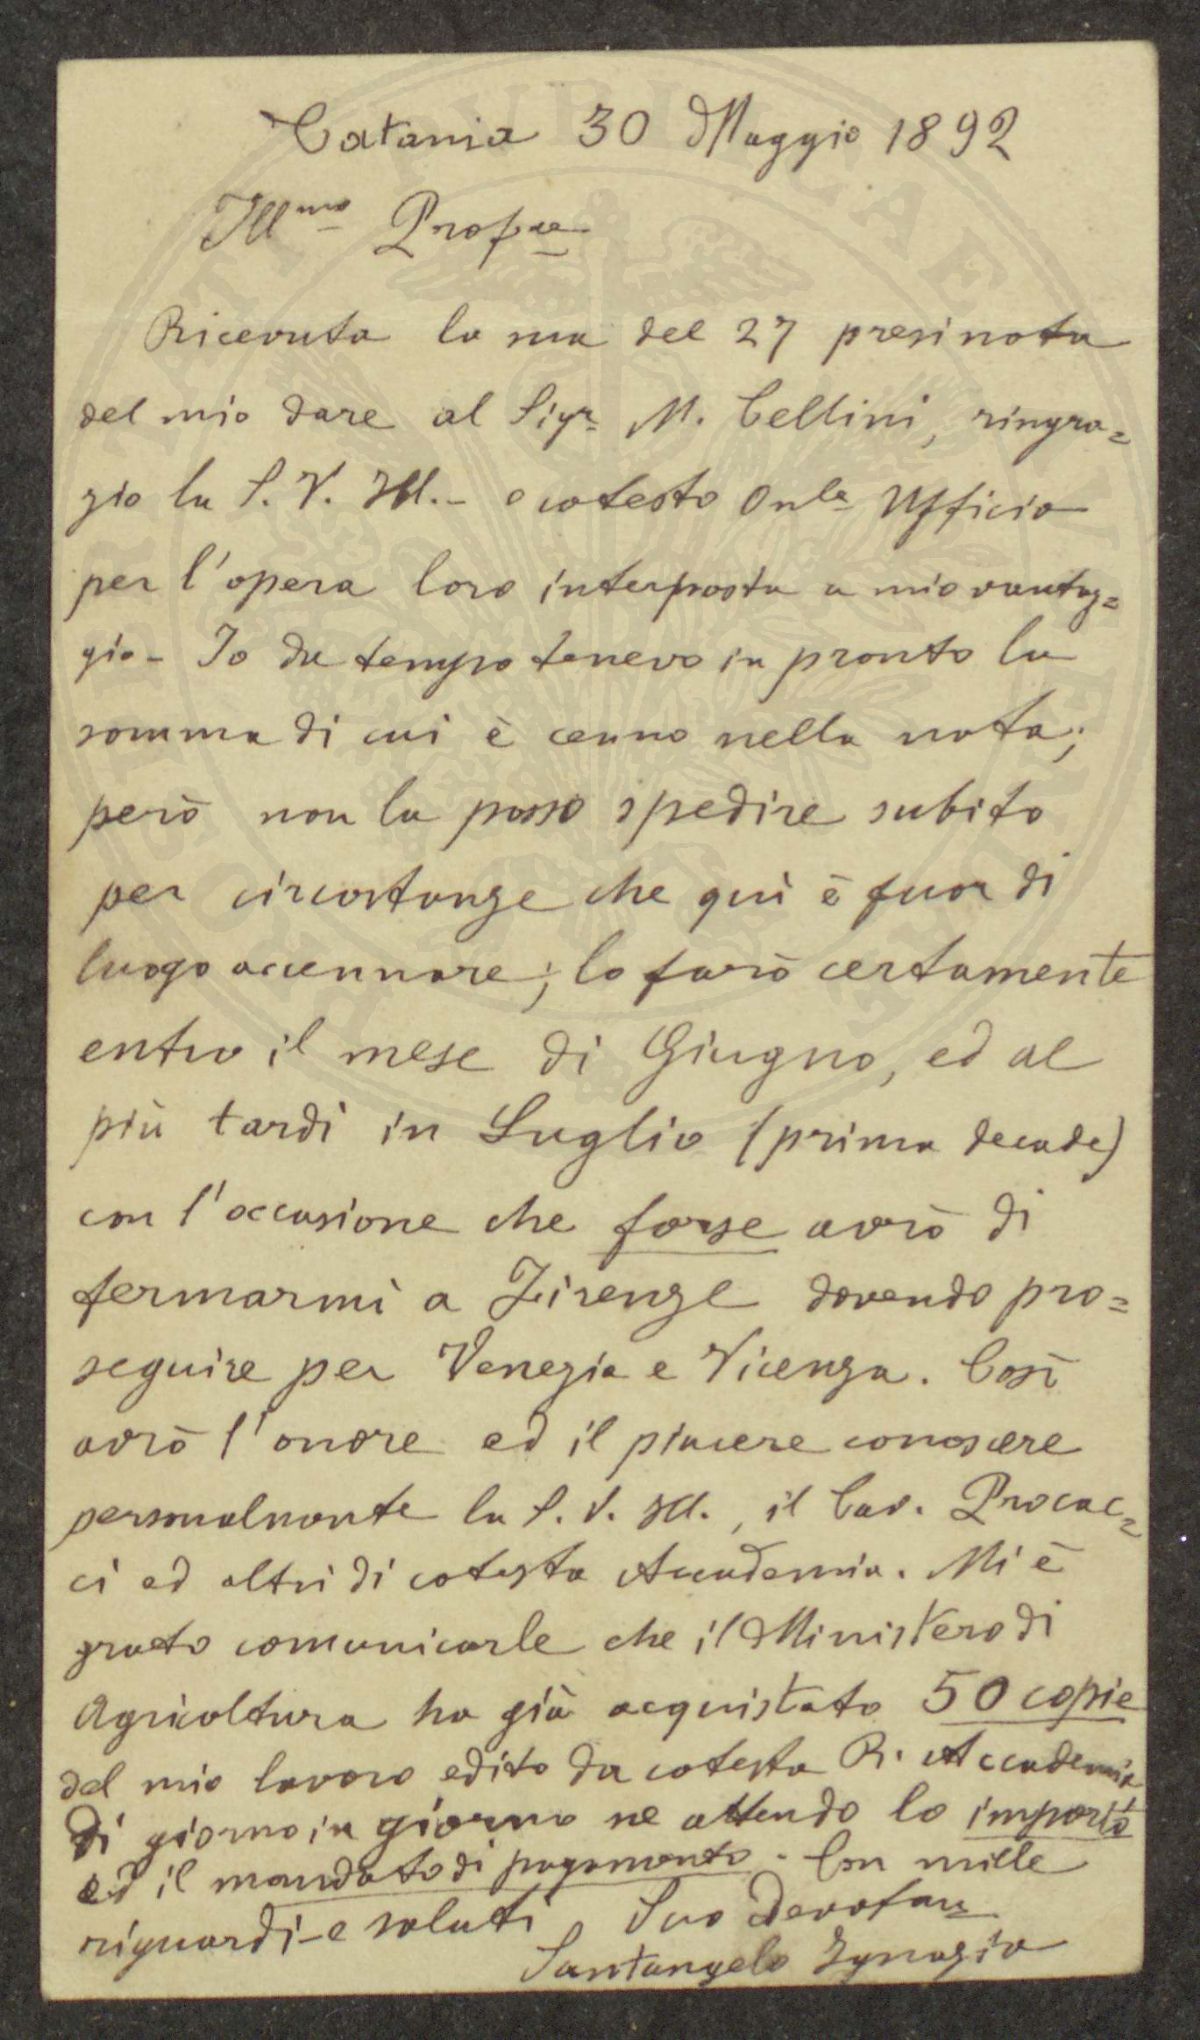 Catania 30 Maggio 1892
Ill.mo Prof.re
Ricevuta la sua del 27 presi nota
del mio dare al Sigr. M. Cellini, ringra=
zio la S. V. Ill. - e cotesto Onle Ufficio
per l'opera loro interposta a mio vantag=
gio - Io da tempo tenevo in pronto la
somma di cui è cenno nella nota;
però non la posso spedire subito
per circostanze che qui è fuor di
luogo accennare; lo farò certamente
entro il mese di Giugno, ed al
più tardi in Luglio (prima decade)
con l'occasione che forse avrò di
fermarmi a Firenze dovendo pro=
seguire per Venezia e Vicenza. Così
avrò l'onore ed il piacere conoscere
personalmente la S. V. Ill., il Cav. Procac=
ci ed altri di cotesta Accademia. Mi è
grato comunicarle che il Ministero di
Agricoltura ha già acquistato 50 copie
del mio lavoro edito da cotesta R. Accademia
Di giorno in giorno ne attendo lo importo
ed il mandato di pagamento. Con mille
riguardi e saluti, Suo Devot
Santangelo Ignazio